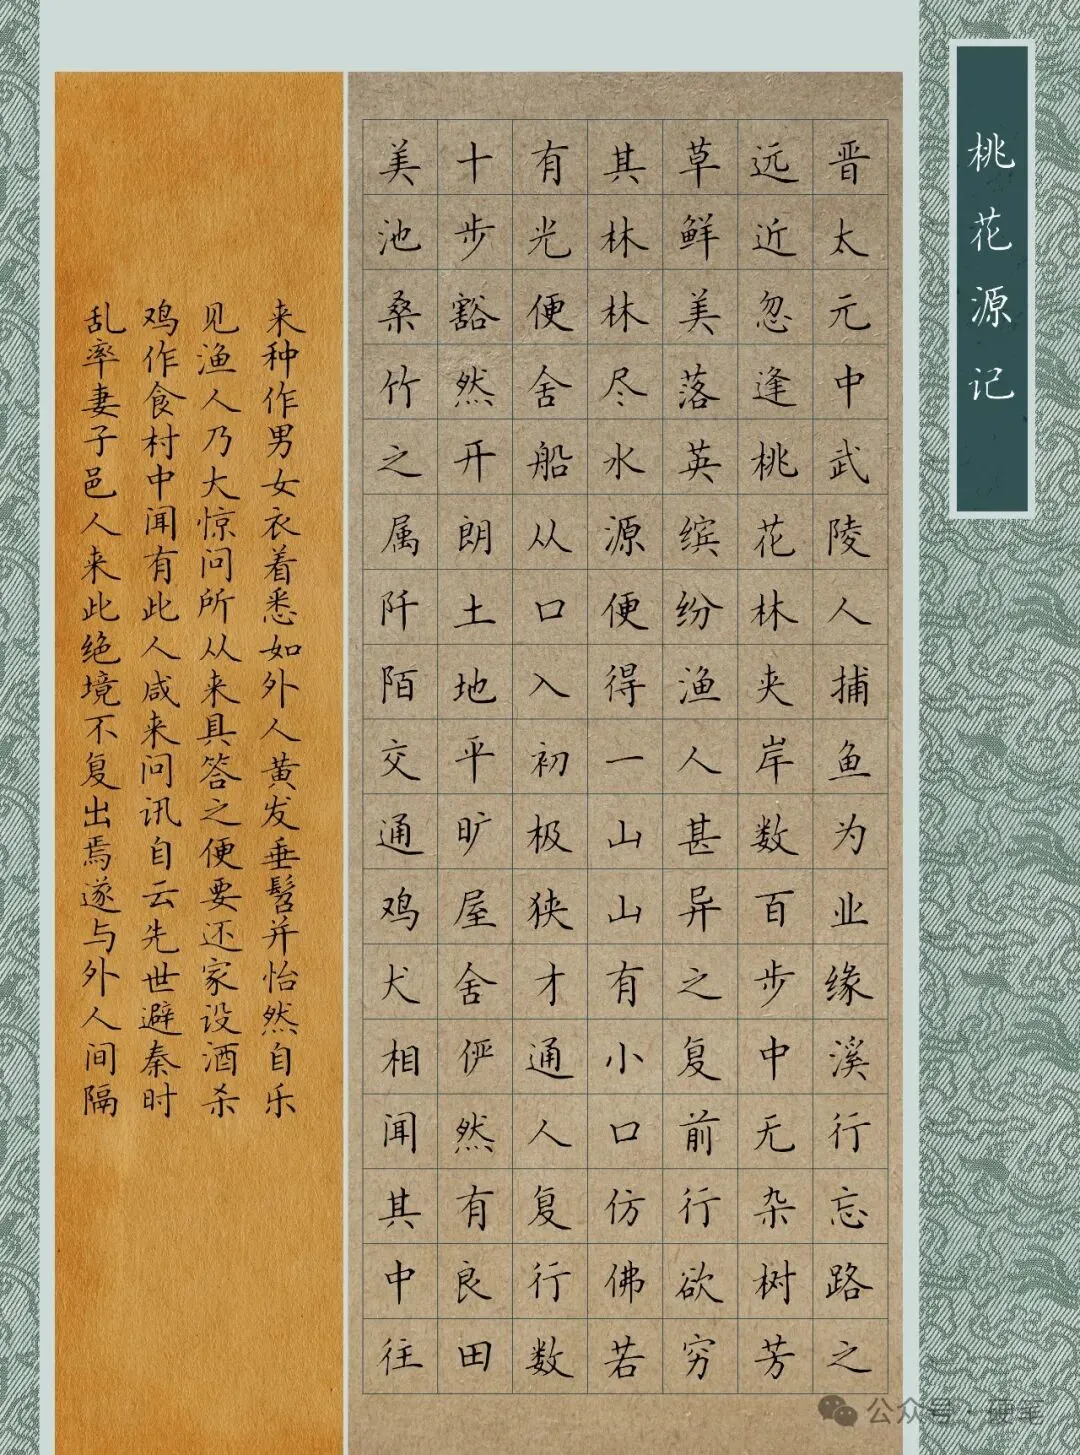 桃花源记
晋太元中武陵人捕鱼为业缘溪行忘路之
远近忽逢桃花林夹岸数百步中无杂树芳
草鲜美落英缤纷渔人甚异之复前行欲穷
其林林尽水源便得一山山有小口仿佛若
有光便舍船从口入初极狭才通人复行数
十步豁然开朗土地平旷屋舍俨然有良田
美池桑竹之属阡陌交通鸡犬相闻其中往
来种作男女衣着悉如外人黄发垂髫并怡然自乐
见渔人乃大惊问所从来具答之便要还家设酒杀
鸡作食村中闻有此人咸来问讯自云先世避秦时
乱率妻子邑人来此绝境不复出焉遂与外人间隔
公众号·硬笔